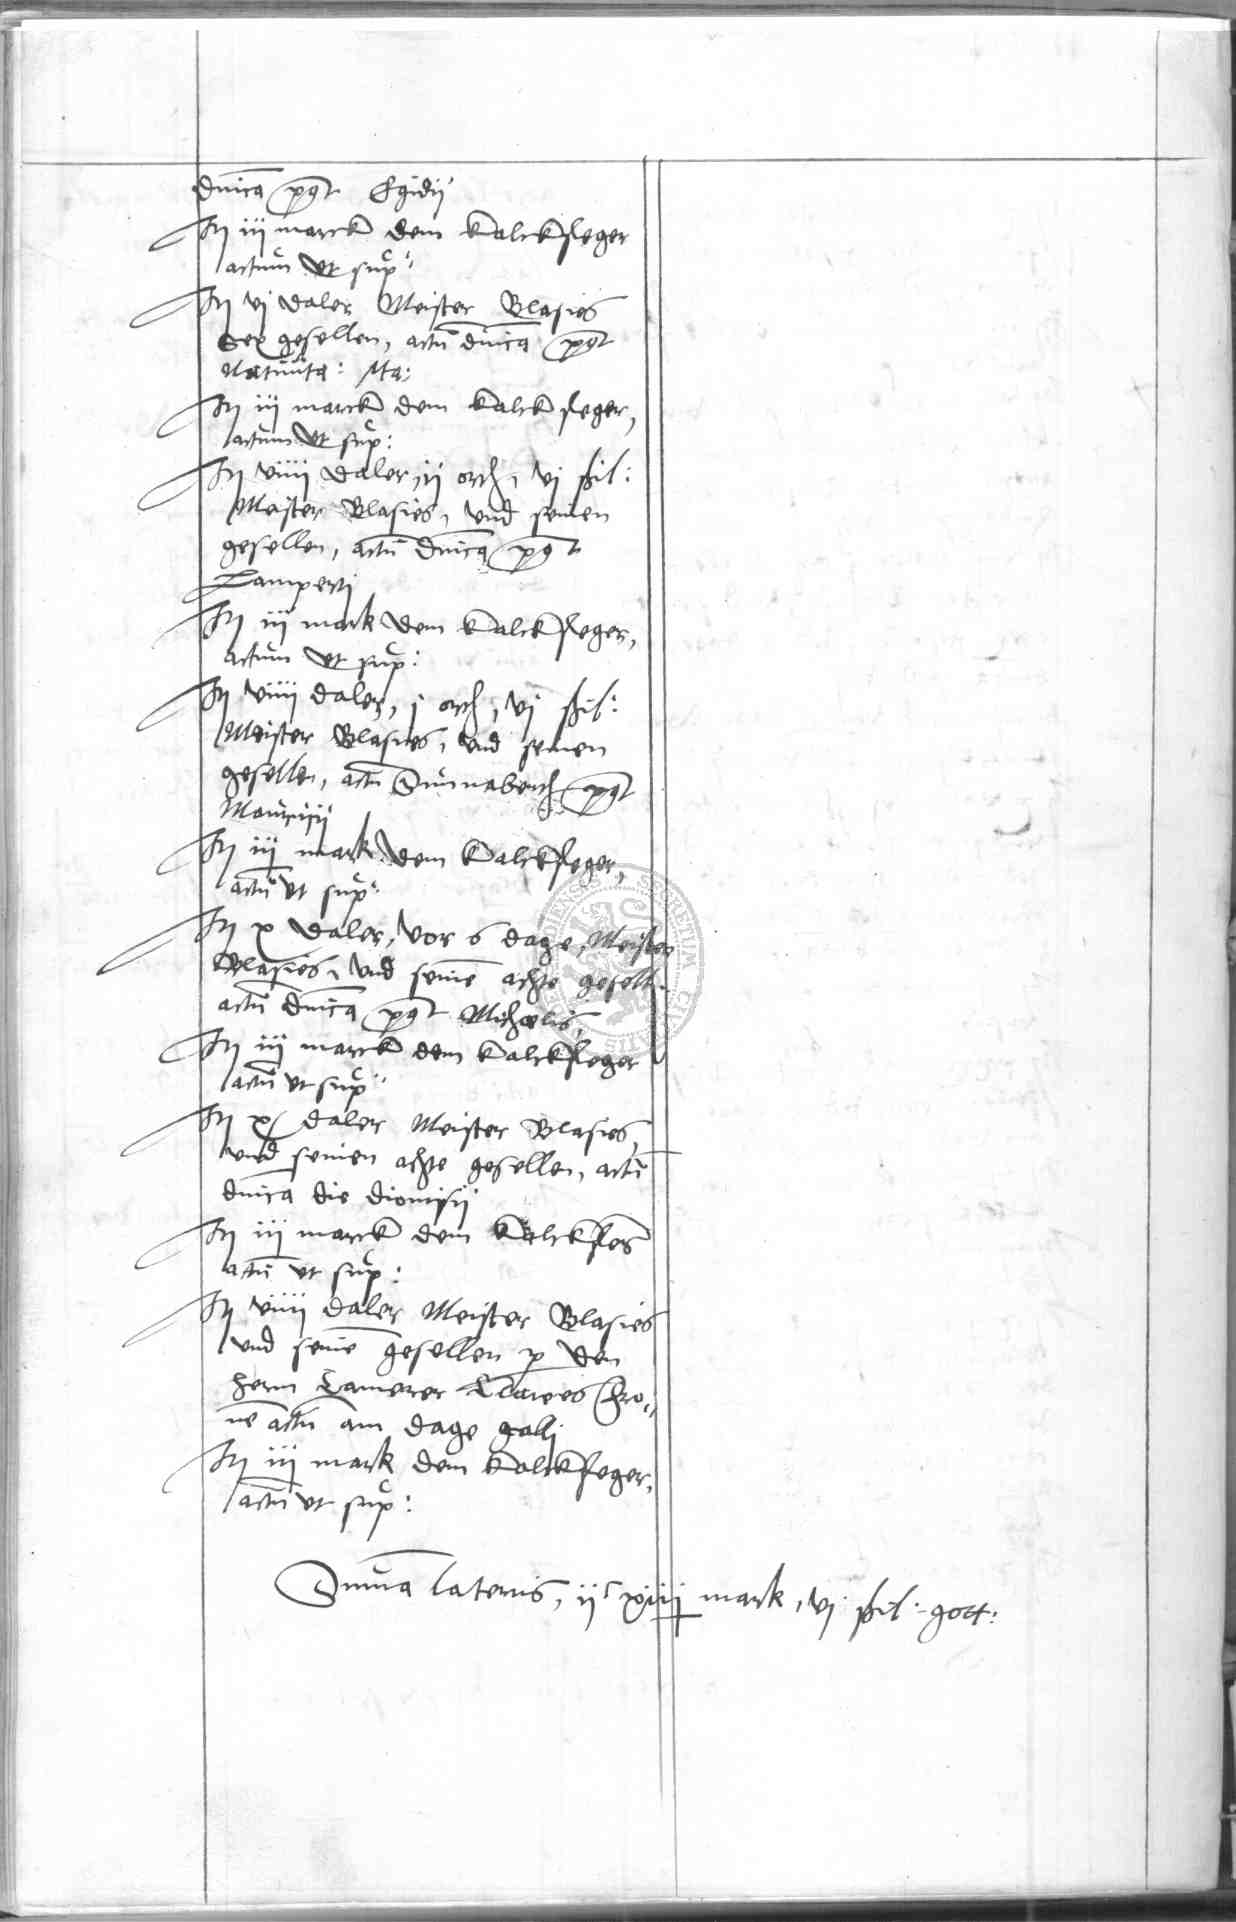 dnica post Egidij
It iij marck dem kalckfleger
actum ut sup:
It vj daler Meister Blasies
Sex gesellen, actu dnica post
Natiuita: Ma:
It iij marck dem kalckfleger,
actum ut sup:
It viiij daler, ij orth, vj schil:
Meister Blasies, vnd seinen
gesellen, actu dnica post
Lamperti
It iij mark dem kalckfleger,
actum ut sup:
It viiij daler, j orth, vj schil:
Meister Blasies, vnd seinen
gesellen, actu Sunnabendt post
Mauricij
It iij mark dem kalckfleger,
actu ut sup:
It x daler, vor 6 dage, Meister
Blasies, vnd seine achte gesell:
actu dnica post Michaelis,
It iij marck dem kalckfleger
actu ut sup:
It x daler Meister Blasies,
vnd seinen achte gesellen, actu
dnica die dionisij
It iij marck dem kalckfleg
actu ut sup:
It viiij daler Meister Blasies
vnd seine gesellen p den
hern Camerer Clawes Gro-
ne actu am dage galli
It iij mark dem kalckfleger,
actu ut sup:
Suma lateris, ijc xiiij mark, vj schil: gott:
SECRETUM CIVITATIS